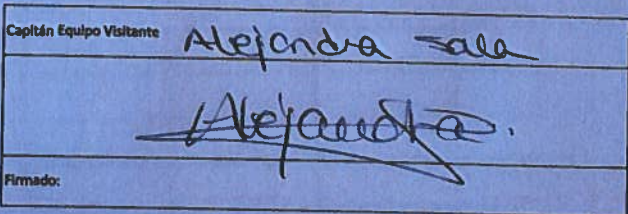 Capitán Equipo Visitante Alejandra Sala
Alejandra.
Firmado: